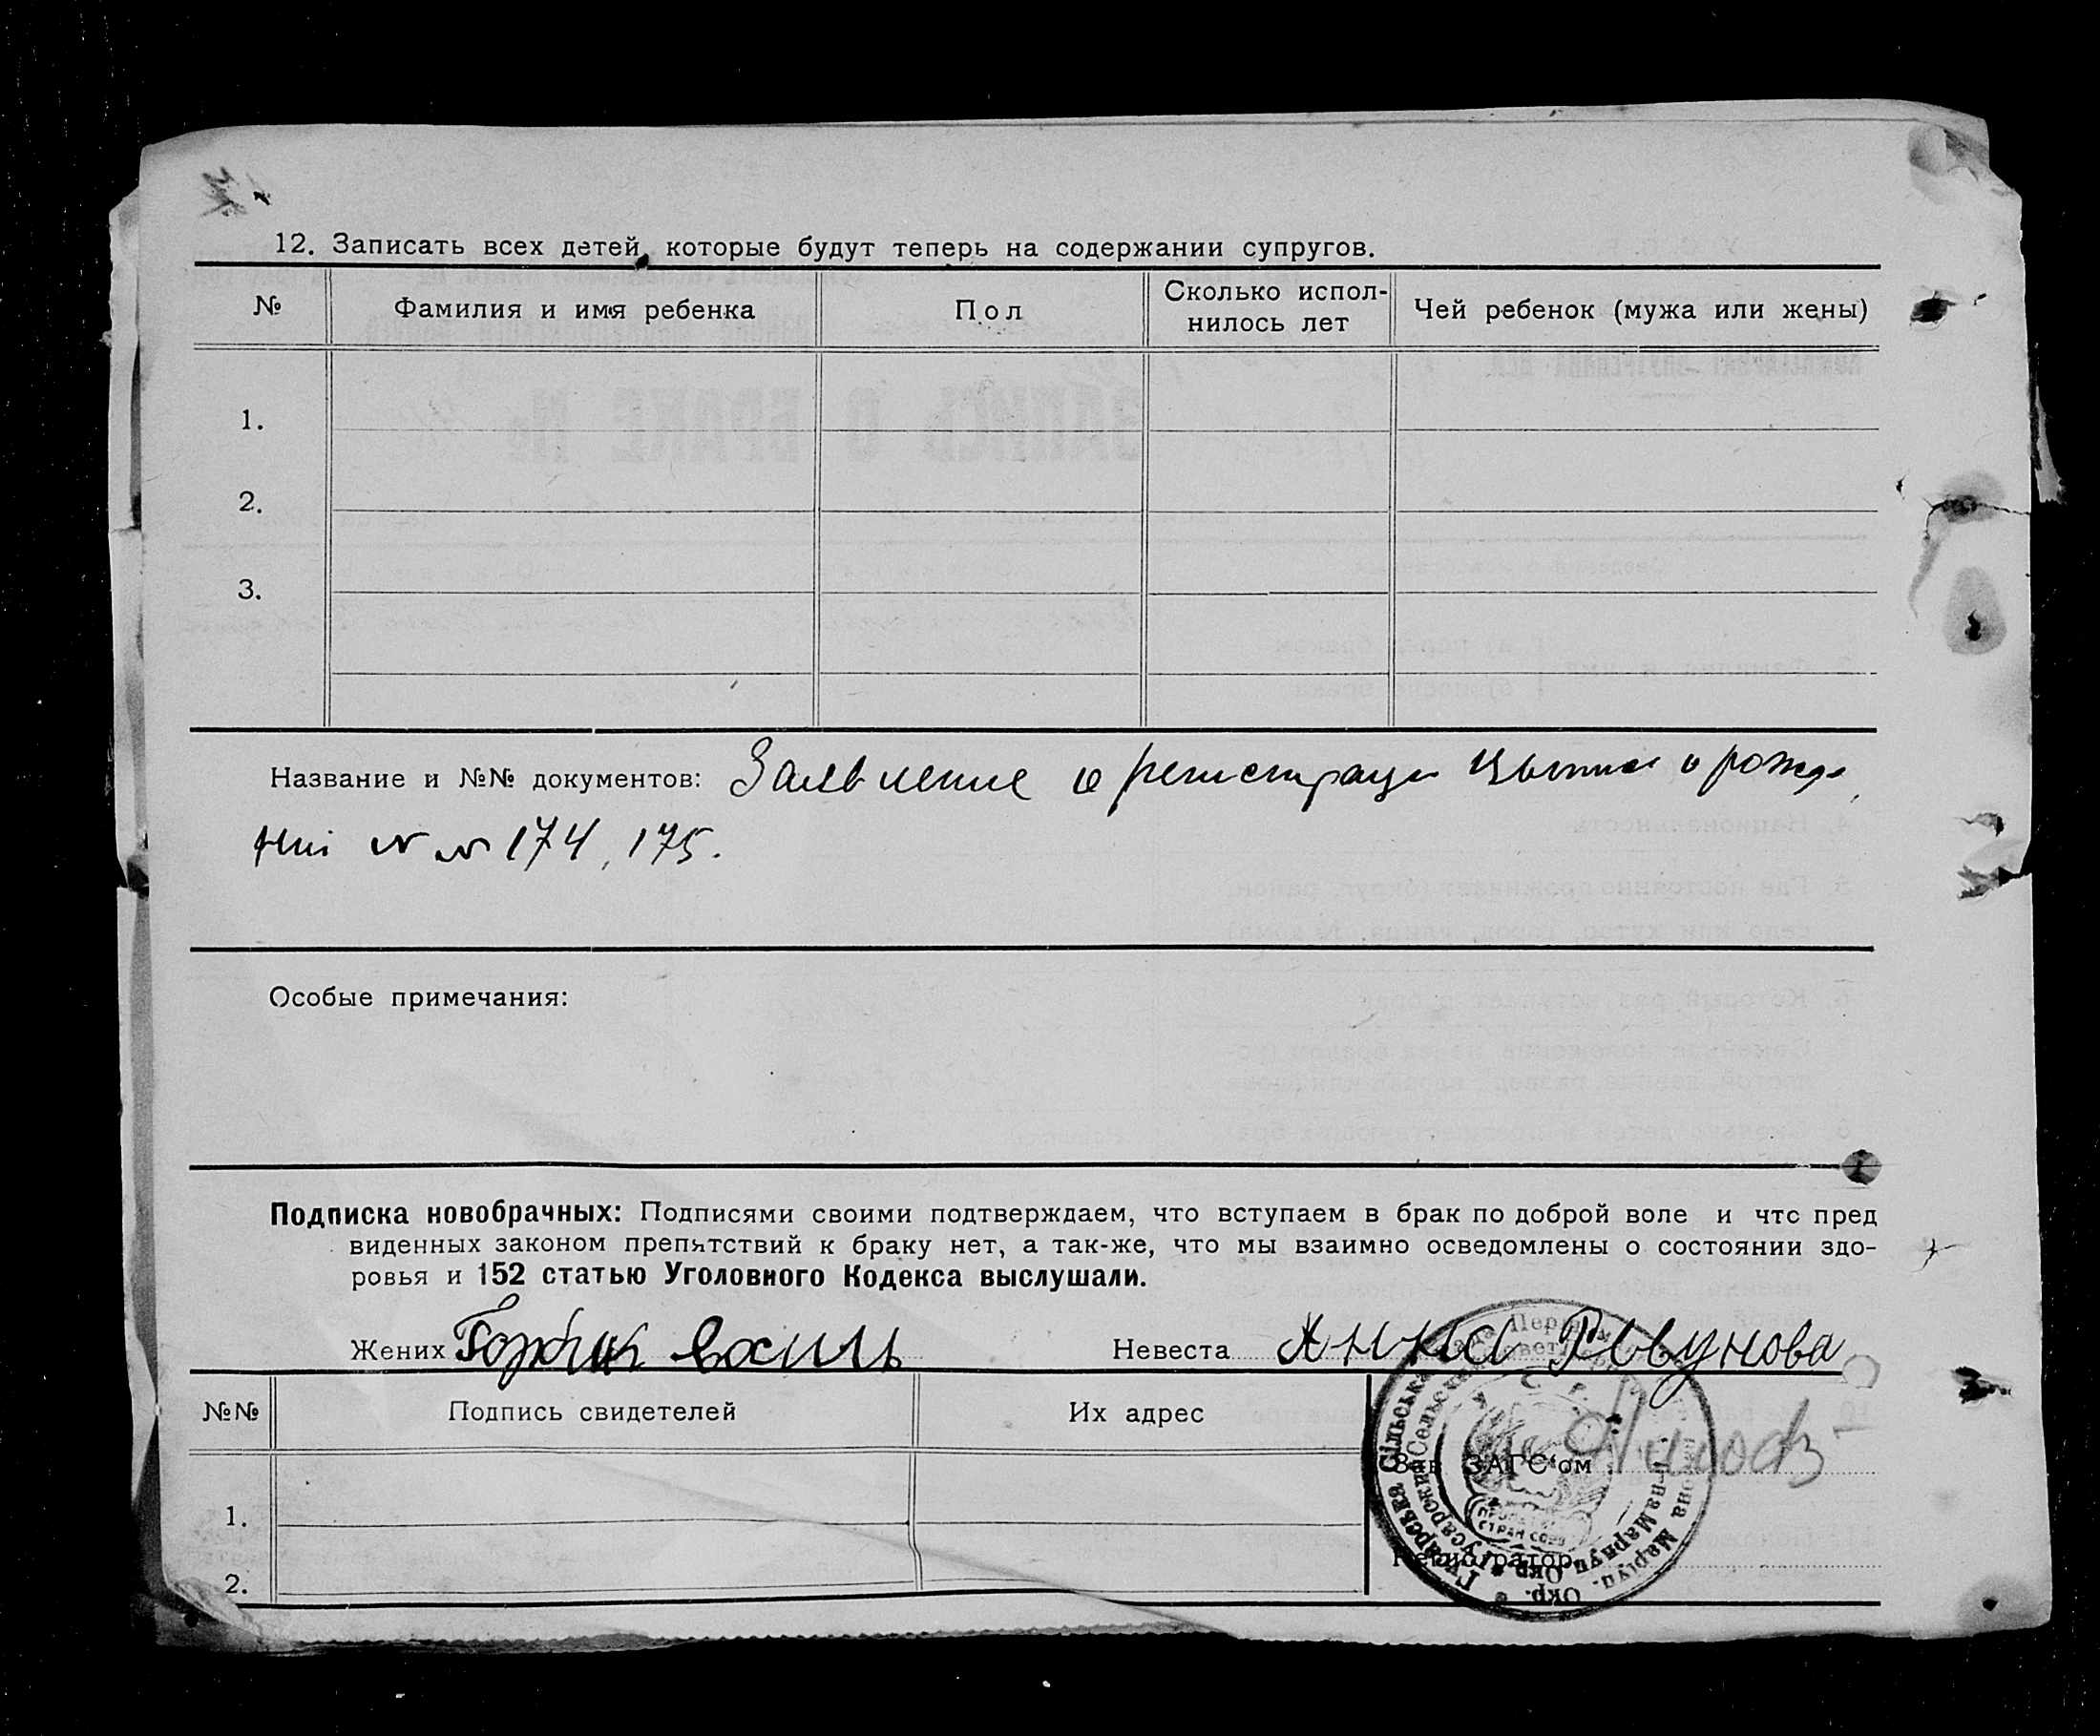 12. Записать всех детей, которые будут теперь на содержании супругов.
№ Фамилия и имя ребенка Пол Сколько испол-нилось лет Чей ребенок (мужа или жены)
1.
2.
3.
Название и №№ документов: Заявление о регистрации о рожде
нии №№ 174, 175.
Особые примечания:
Подписка новобрачных: Подписями своими подтверждаем, что вступаем в брак по доброй воле и что пред
виденных законом препятствий к браку нет, а так-же, что мы взаимно осведомлены о состоянии здо-
ровья и 152 статью Уголовного Кодекса выслушали.
Жених Невеста Анна Ревунова
№№ Подпись свидетелей Их адрес
Зав ЗАГС'ом
1.
Регистратор
2.